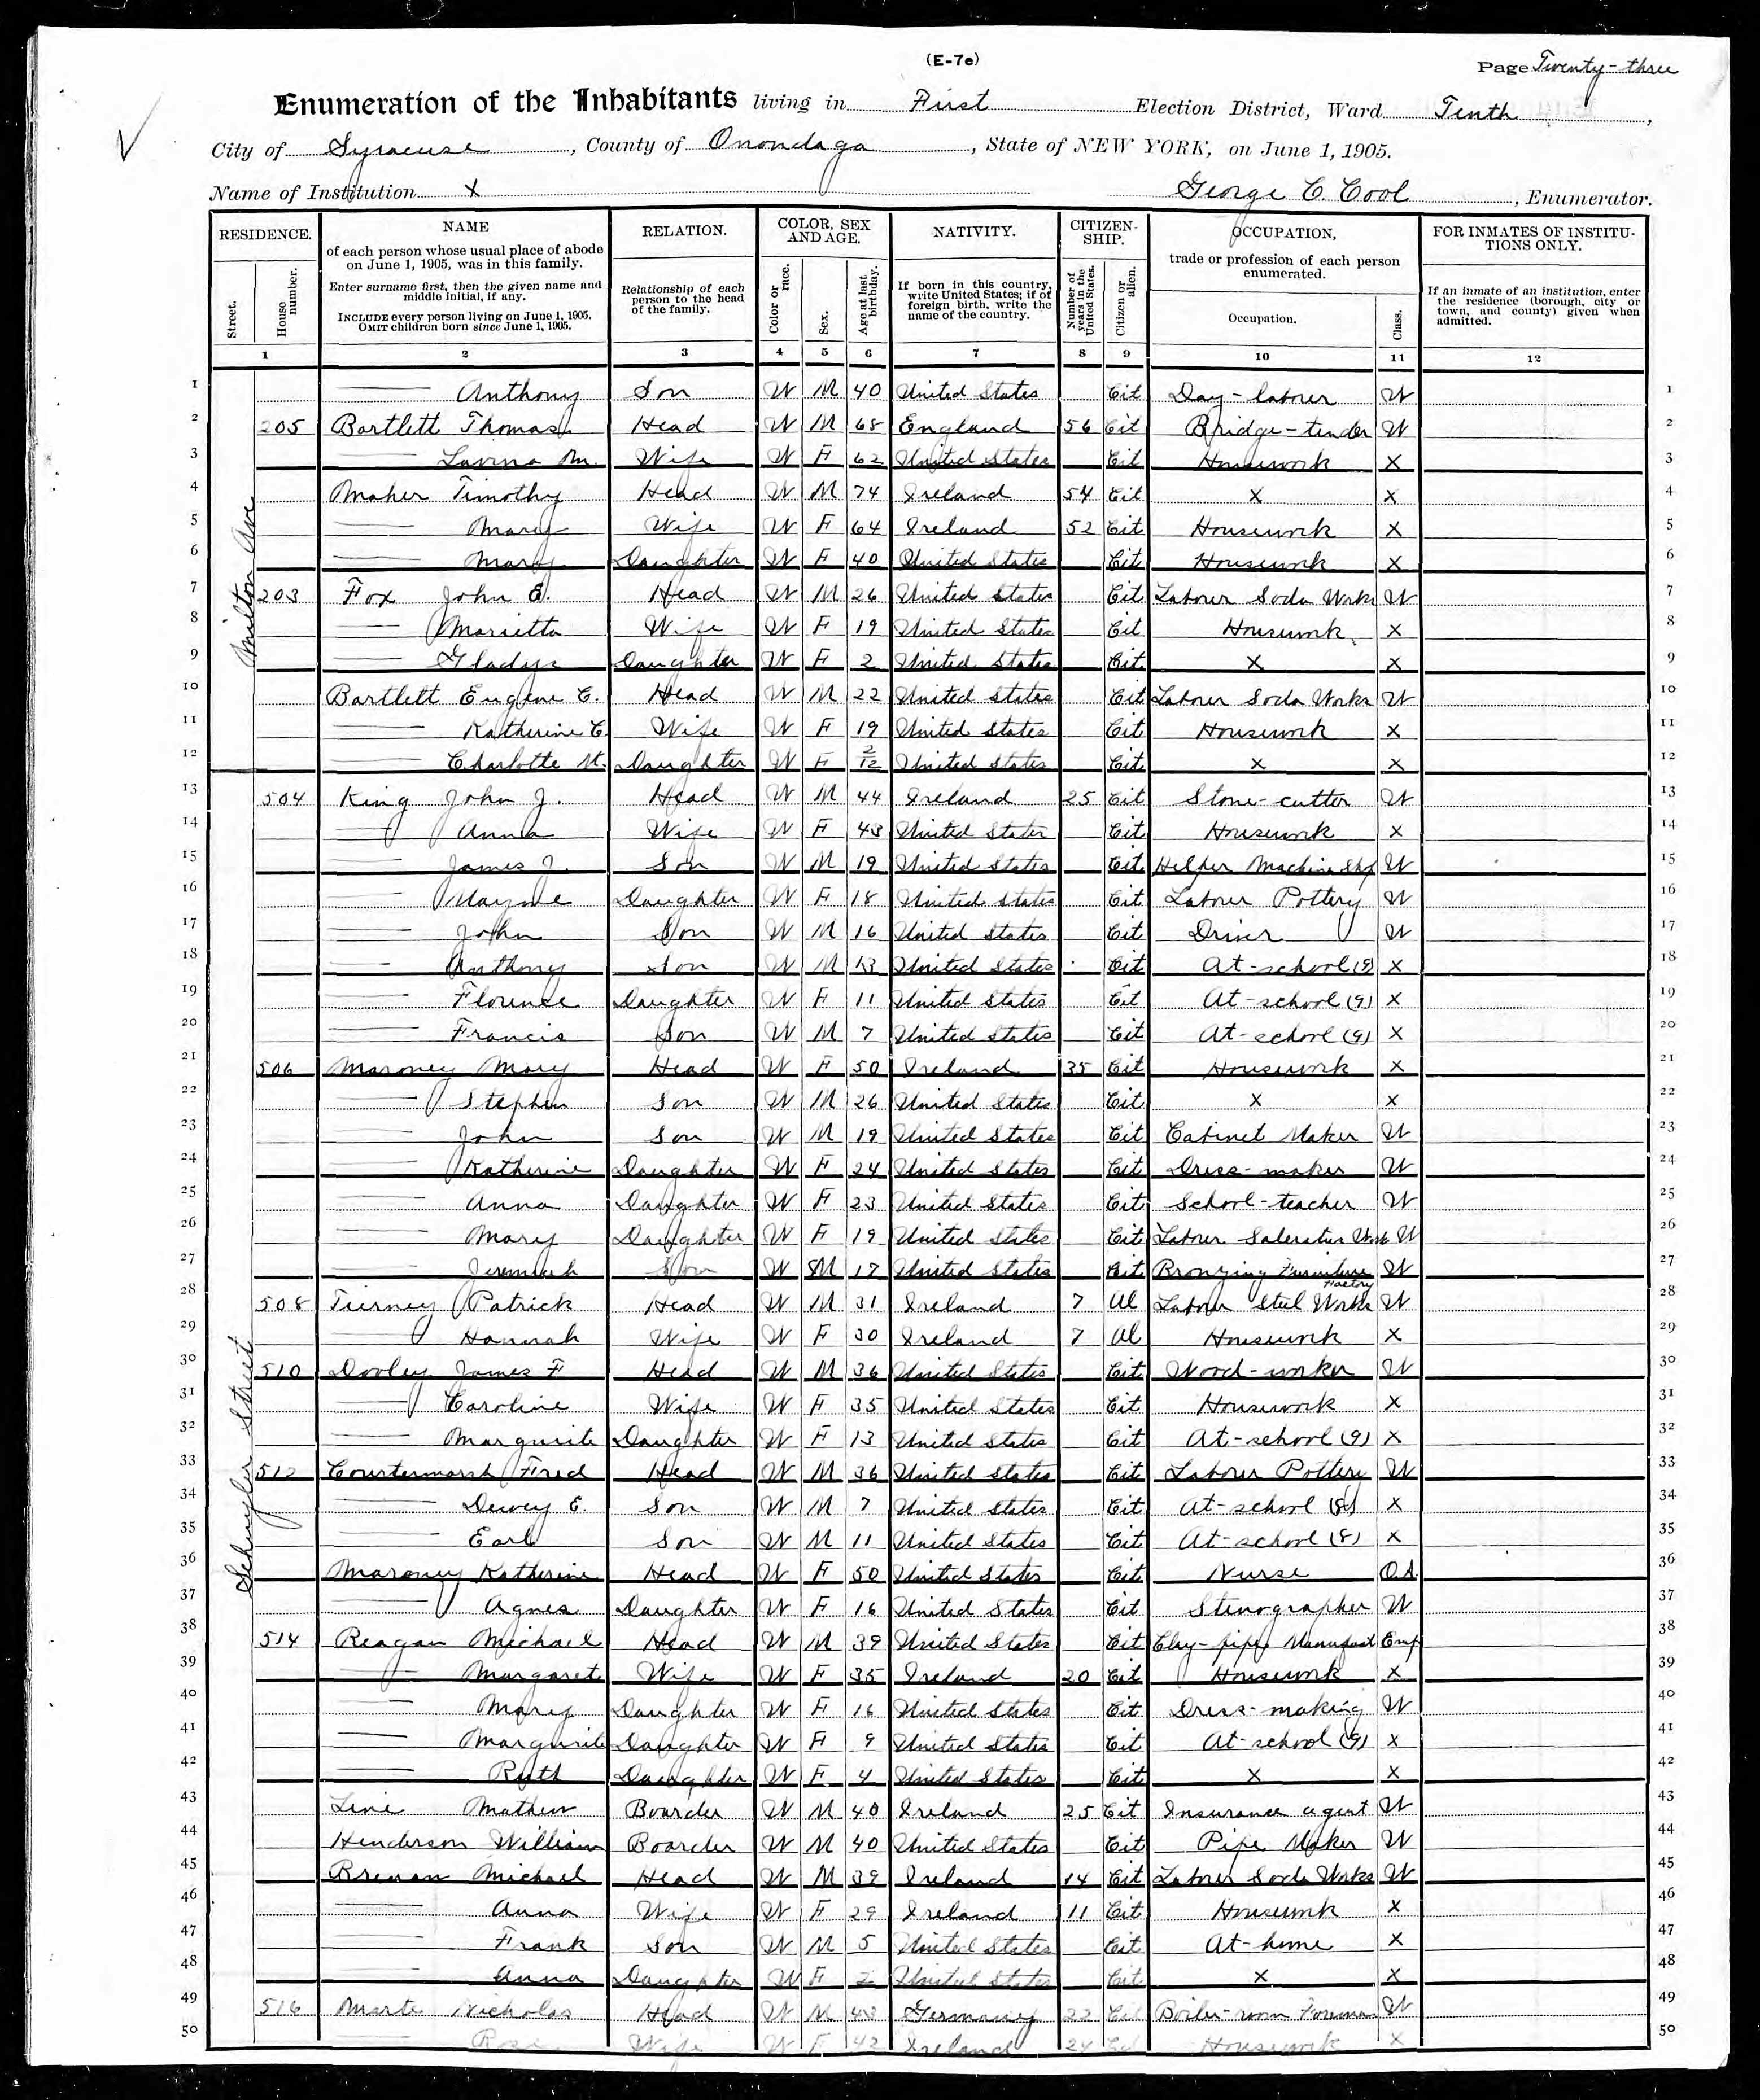 (E-7e)
Page Twenty-three
Enumeration of the Inhabitants living in First Election District, Ward Tenth,
City of Syracuse, County of Onondaga, State of NEW YORK, on June 1, 1905.
Name of Institution X George C. Cool, Enumerator.
RESIDENCE. NAME RELATION. COLOR, SEX AND AGE. NATIVITY. CITIZEN-SHIP. OCCUPATION, FOR INMATES OF INSTITU-TIONS ONLY.
of each person whose usual place of abode on June 1, 1905, was in this family.
Enter surname first, then the given name and middle initial, if any.
INCLUDE every person living on June 1, 1905. OMIT children born since June 1, 1905.
Relationship of each person to the head of the family.
If born in this country, write United States; if of foreign birth, write the name of the country.
trade or profession of each person enumerated.
If an inmate of an institution, enter the residence (borough, city or town, and county) given when admitted.
Street. House number. Color or race. Sex. Age at last birthday. Number of years in the United States. Citizen or alien. Occupation. Class.
1 2 3 4 5 6 7 8 9 10 11 12
Milton Ave
1 Anthony Son W M 40 United States Cit Day-laborer W 1
2 205 Bartlett Thomas Head W M 68 England 56 Cit Bridge-tender W 2
3 Lavina M. Wife W F 62 United States Cit Housework X 3
4 Maher Timothy Head W M 74 Ireland 54 Cit X X 4
5 Mary Wife W F 64 Ireland 52 Cit Housework X 5
6 Mary Daughter W F 40 United States Cit Housework X 6
7 203 Fox John E. Head W M 26 United States Cit Laborer Soda Works W 7
8 Marietta Wife W F 19 United States Cit Housework X 8
9 Gladys Daughter W F 2 United States Cit X X 9
10 Bartlett Eugene C. Head W M 22 United States Cit Laborer Soda Works W 10
11 Katherine C Wife W F 19 United States Cit Housework X 11
12 Charlotte M. Daughter W F 2/12 United States Cit X X 12
Schuyler Street
13 504 King John J. Head W M 44 Ireland 25 Cit Stone-cutter W 13
14 Anna Wife W F 43 United States Cit Housework X 14
15 James J. Son W M 19 United States Cit Helper Machine Shop W 15
16 Mayme Daughter W F 18 United States Cit Laborer Pottery W 16
17 John Son W M 16 United States Cit Driver W 17
18 Anthony Son W M 13 United States Cit At-school (9) X 18
19 Florence Daughter W F 11 United States Cit At-school (9) X 19
20 Francis Son W M 7 United States Cit At-school (9) X 20
21 506 Maroney Mary Head W F 50 Ireland 35 Cit Housework X 21
22 Stephen Son W M 26 United States Cit X X 22
23 John Son W M 19 United States Cit Cabinet Maker W 23
24 Katherine Daughter W F 24 United States Cit Dress-maker W 24
25 Anna Daughter W F 23 United States Cit School-teacher W 25
26 Mary Daughter W F 19 United States Cit Laborer Saleratus Work W 26
27 Jeremiah Son W M 17 United States Cit Bronzing Furniture Factory W 27
28 508 Tierney Patrick Head W M 31 Ireland 7 Al Laborer Steel Works W 28
29 Hannah Wife W F 30 Ireland 7 Al Housework X 29
30 510 Dooley James F Head W M 36 United States Cit Wood-worker W 30
31 Caroline Wife W F 35 United States Cit Housework X 31
32 Margurite Daughter W F 13 United States Cit At-school (9) X 32
33 512 Countermarsh Fred Head W M 36 United States Cit Laborer Pottery W 33
34 Dewey E. Son W M 7 United States Cit At-school (8) X 34
35 Earl Son W M 11 United States Cit At-school (8) X 35
36 Maroney Katherine Head W F 50 United States Cit Nurse O.A. 36
37 Agnes Daughter W F 16 United States Cit Stenographer W 37
38 514 Reagan Michael Head W M 39 United States Cit Clay-pipe Manufact Emp 38
39 Margaret Wife W F 35 Ireland 20 Cit Housework X 39
40 Mary Daughter W F 16 United States Cit Dress-making W 40
41 Margurite Daughter W F 9 United States Cit At-school (9) X 41
42 Ruth Daughter W F 4 United States Cit X X 42
43 Line Mathew Boarder W M 40 Ireland 25 Cit Insurance agent W 43
44 Henderson William Boarder W M 40 United States Cit Pipe Maker W 44
45 Brenan Michael Head W M 39 Ireland 14 Cit Laborer Soda Works W 45
46 Anna Wife W F 29 Ireland 11 Cit Housework X 46
47 Frank Son W M 5 United States Cit At-home X 47
48 Anna Daughter W F 2 United States Cit X X 48
49 516 Marte Nicholas Head W M 43 Germany 22 Cit Boiler-room Foreman W 49
50 Rose Wife W F 42 Ireland 24 Cit Housework X 50